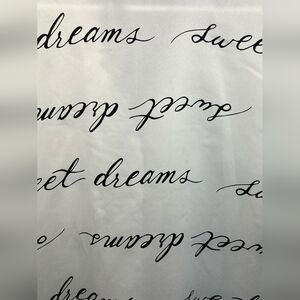 dreams swee
sweet dreams
eet dreams sw
sweet dreams
dreams swe